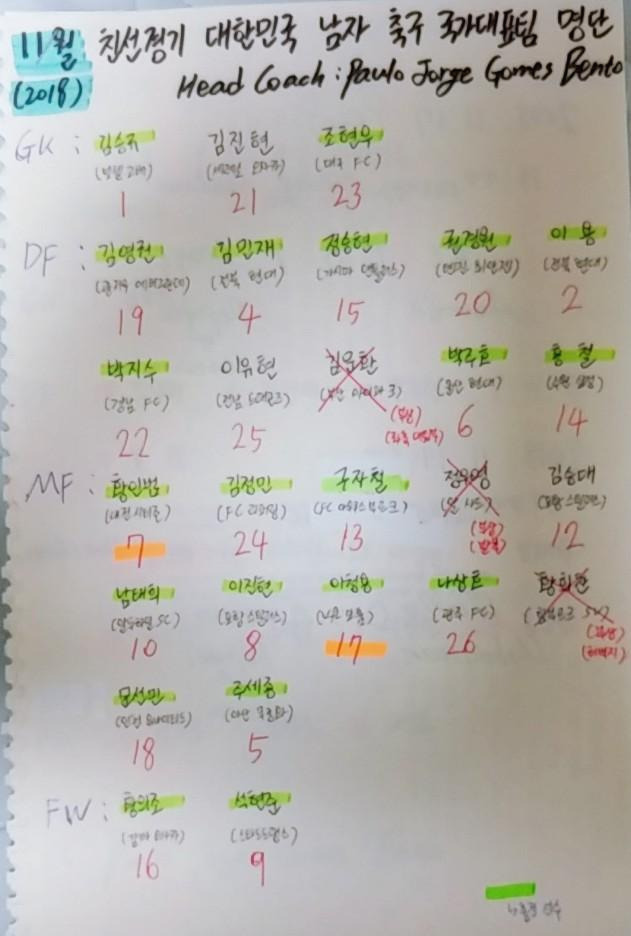 11월 친선경기 대한민국 남자 축구 국가대표팀 명단
(2018) Head Coach : Paulo Jorge Gomes Bento
GK : 김승규 김진현 조현우
(세레소 오사카) (대구 FC)
1 21 23
DF : 김영권 김민재 정승현 권경원 이용
(광저우 에버그란데) (전북 현대) (가시마 앤틀러스) (톈진 취안젠) (전북 현대)
19 4 15 20 2
박지수 이유현 김문환 박주호 홍철
(경남 FC) (전남 드래곤즈) (부산 아이파크) (울산 현대) (수원 삼성)
(부상)
22 25 6 14
MF : 황인범 김정민 구자철 정우영 김승대
(대전 시티즌) (FC 리퍼링) (FC 아우크스부르크) (알 사드) (포항 스틸러스)
(부상)
7 24 13 (발목) 12
남태희 이진현 이청용 나상호 황희찬
(알두하일 SC) (포항 스틸러스) (VfL 보훔) (광주 FC) (함부르크 SV)
(부상)
10 8 17 26 (허벅지)
문선민 주세종
(인천 유나이티드) (아산 무궁화)
18 5
FW : 황의조 석현준
(감바 오사카) (스타드 드 랭스)
16 9